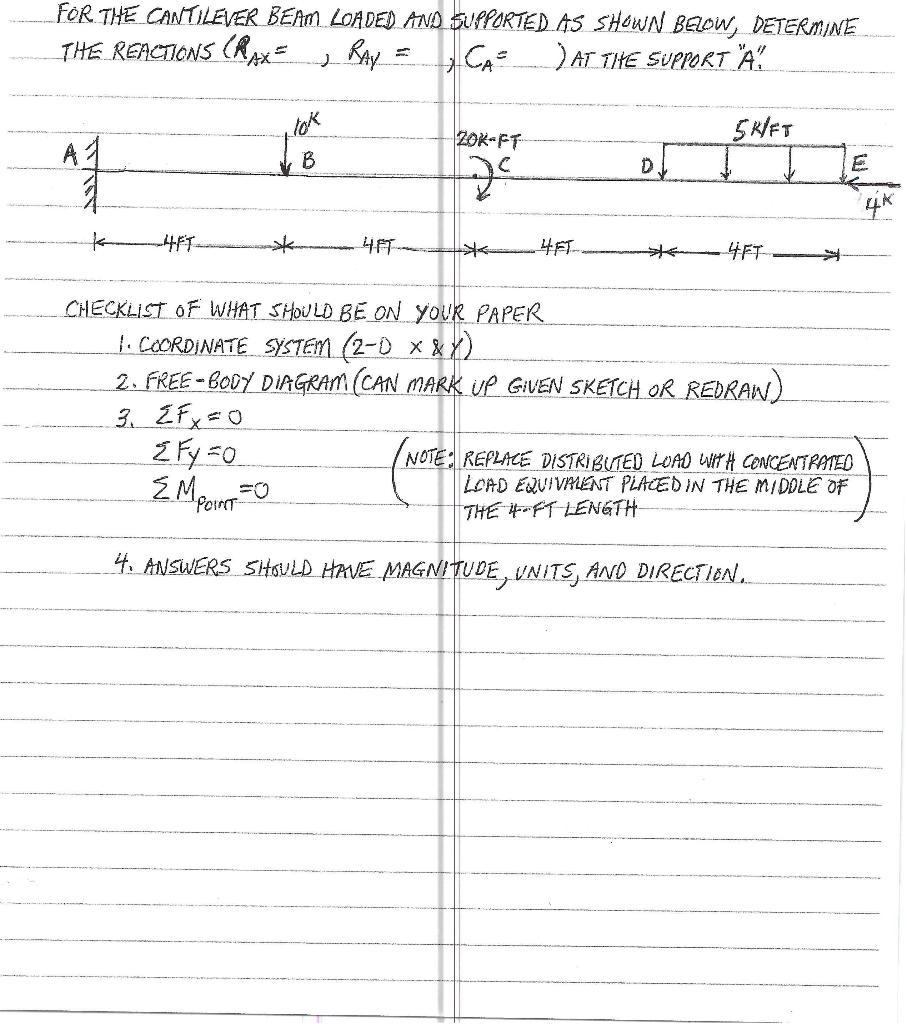 FOR THE CANTILEVER BEAM LOADED AND SUPPORTED AS SHOWN BELOW, DETERMINE
THE REACTIONS (RAX= , RAY = , CA= ) AT THE SUPPORT "A".
10K
20K-FT
5 K/FT
A
B
C
D
E
4K
4FT
4FT
4FT
4FT
CHECKLIST OF WHAT SHOULD BE ON YOUR PAPER
1. COORDINATE SYSTEM (2-D X & Y)
2. FREE-BODY DIAGRAM (CAN MARK UP GIVEN SKETCH OR REDRAW)
3. ΣFx=0
ΣFy=0
ΣMPOINT=0
(NOTE: REPLACE DISTRIBUTED LOAD WITH CONCENTRATED
LOAD EQUIVALENT PLACED IN THE MIDDLE OF
THE 4-FT LENGTH)
4. ANSWERS SHOULD HAVE MAGNITUDE, UNITS, AND DIRECTION.